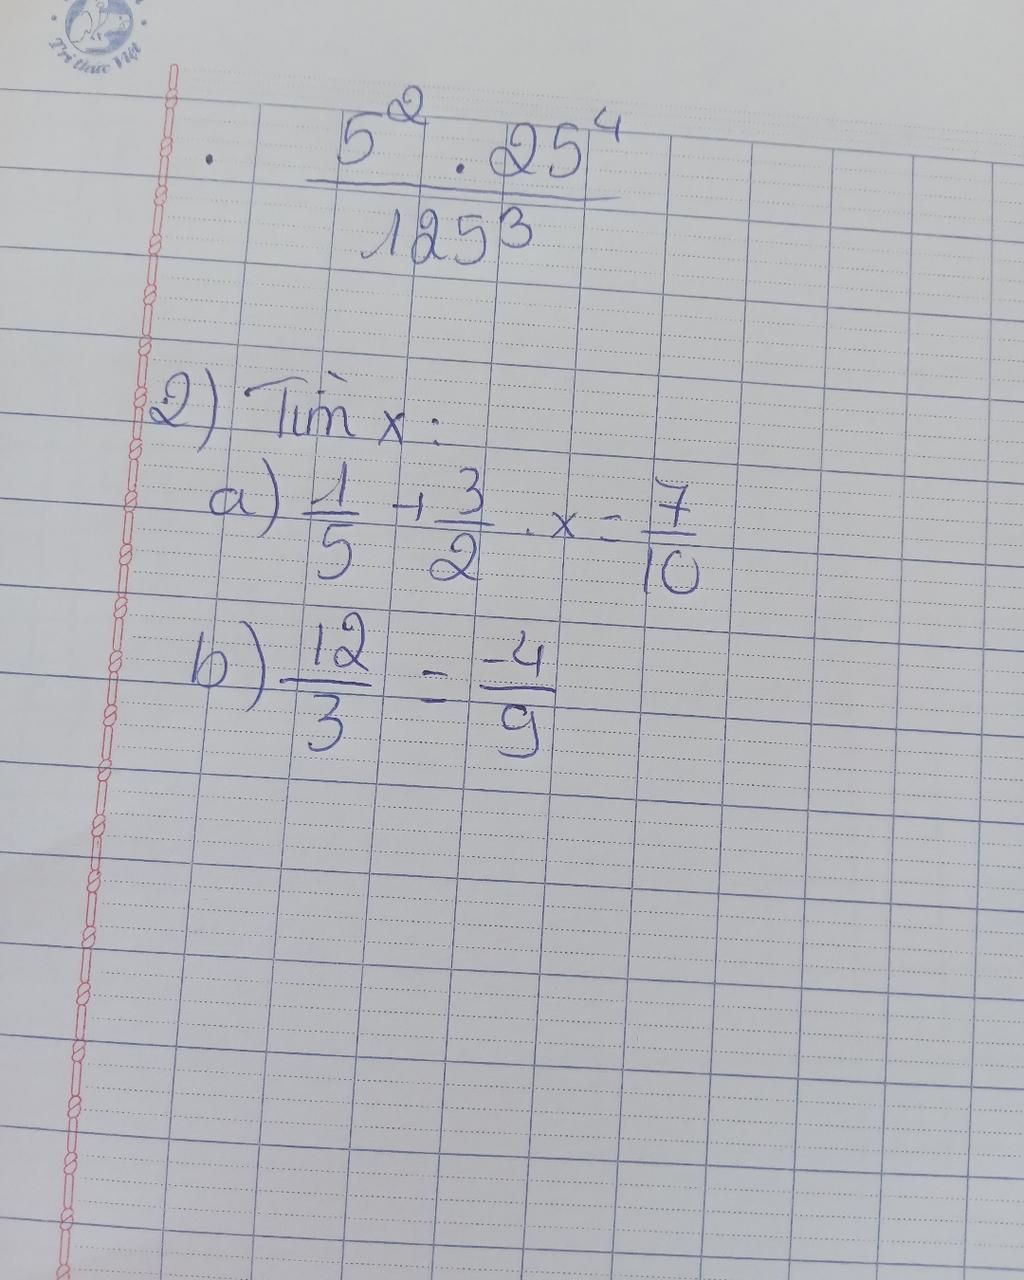 Tri thức Việt
. 5² . 25⁴
125³
2) Tìm x:
a) 1/5 + 3/2 . x = 7/10
b) 12/3 = -4/9